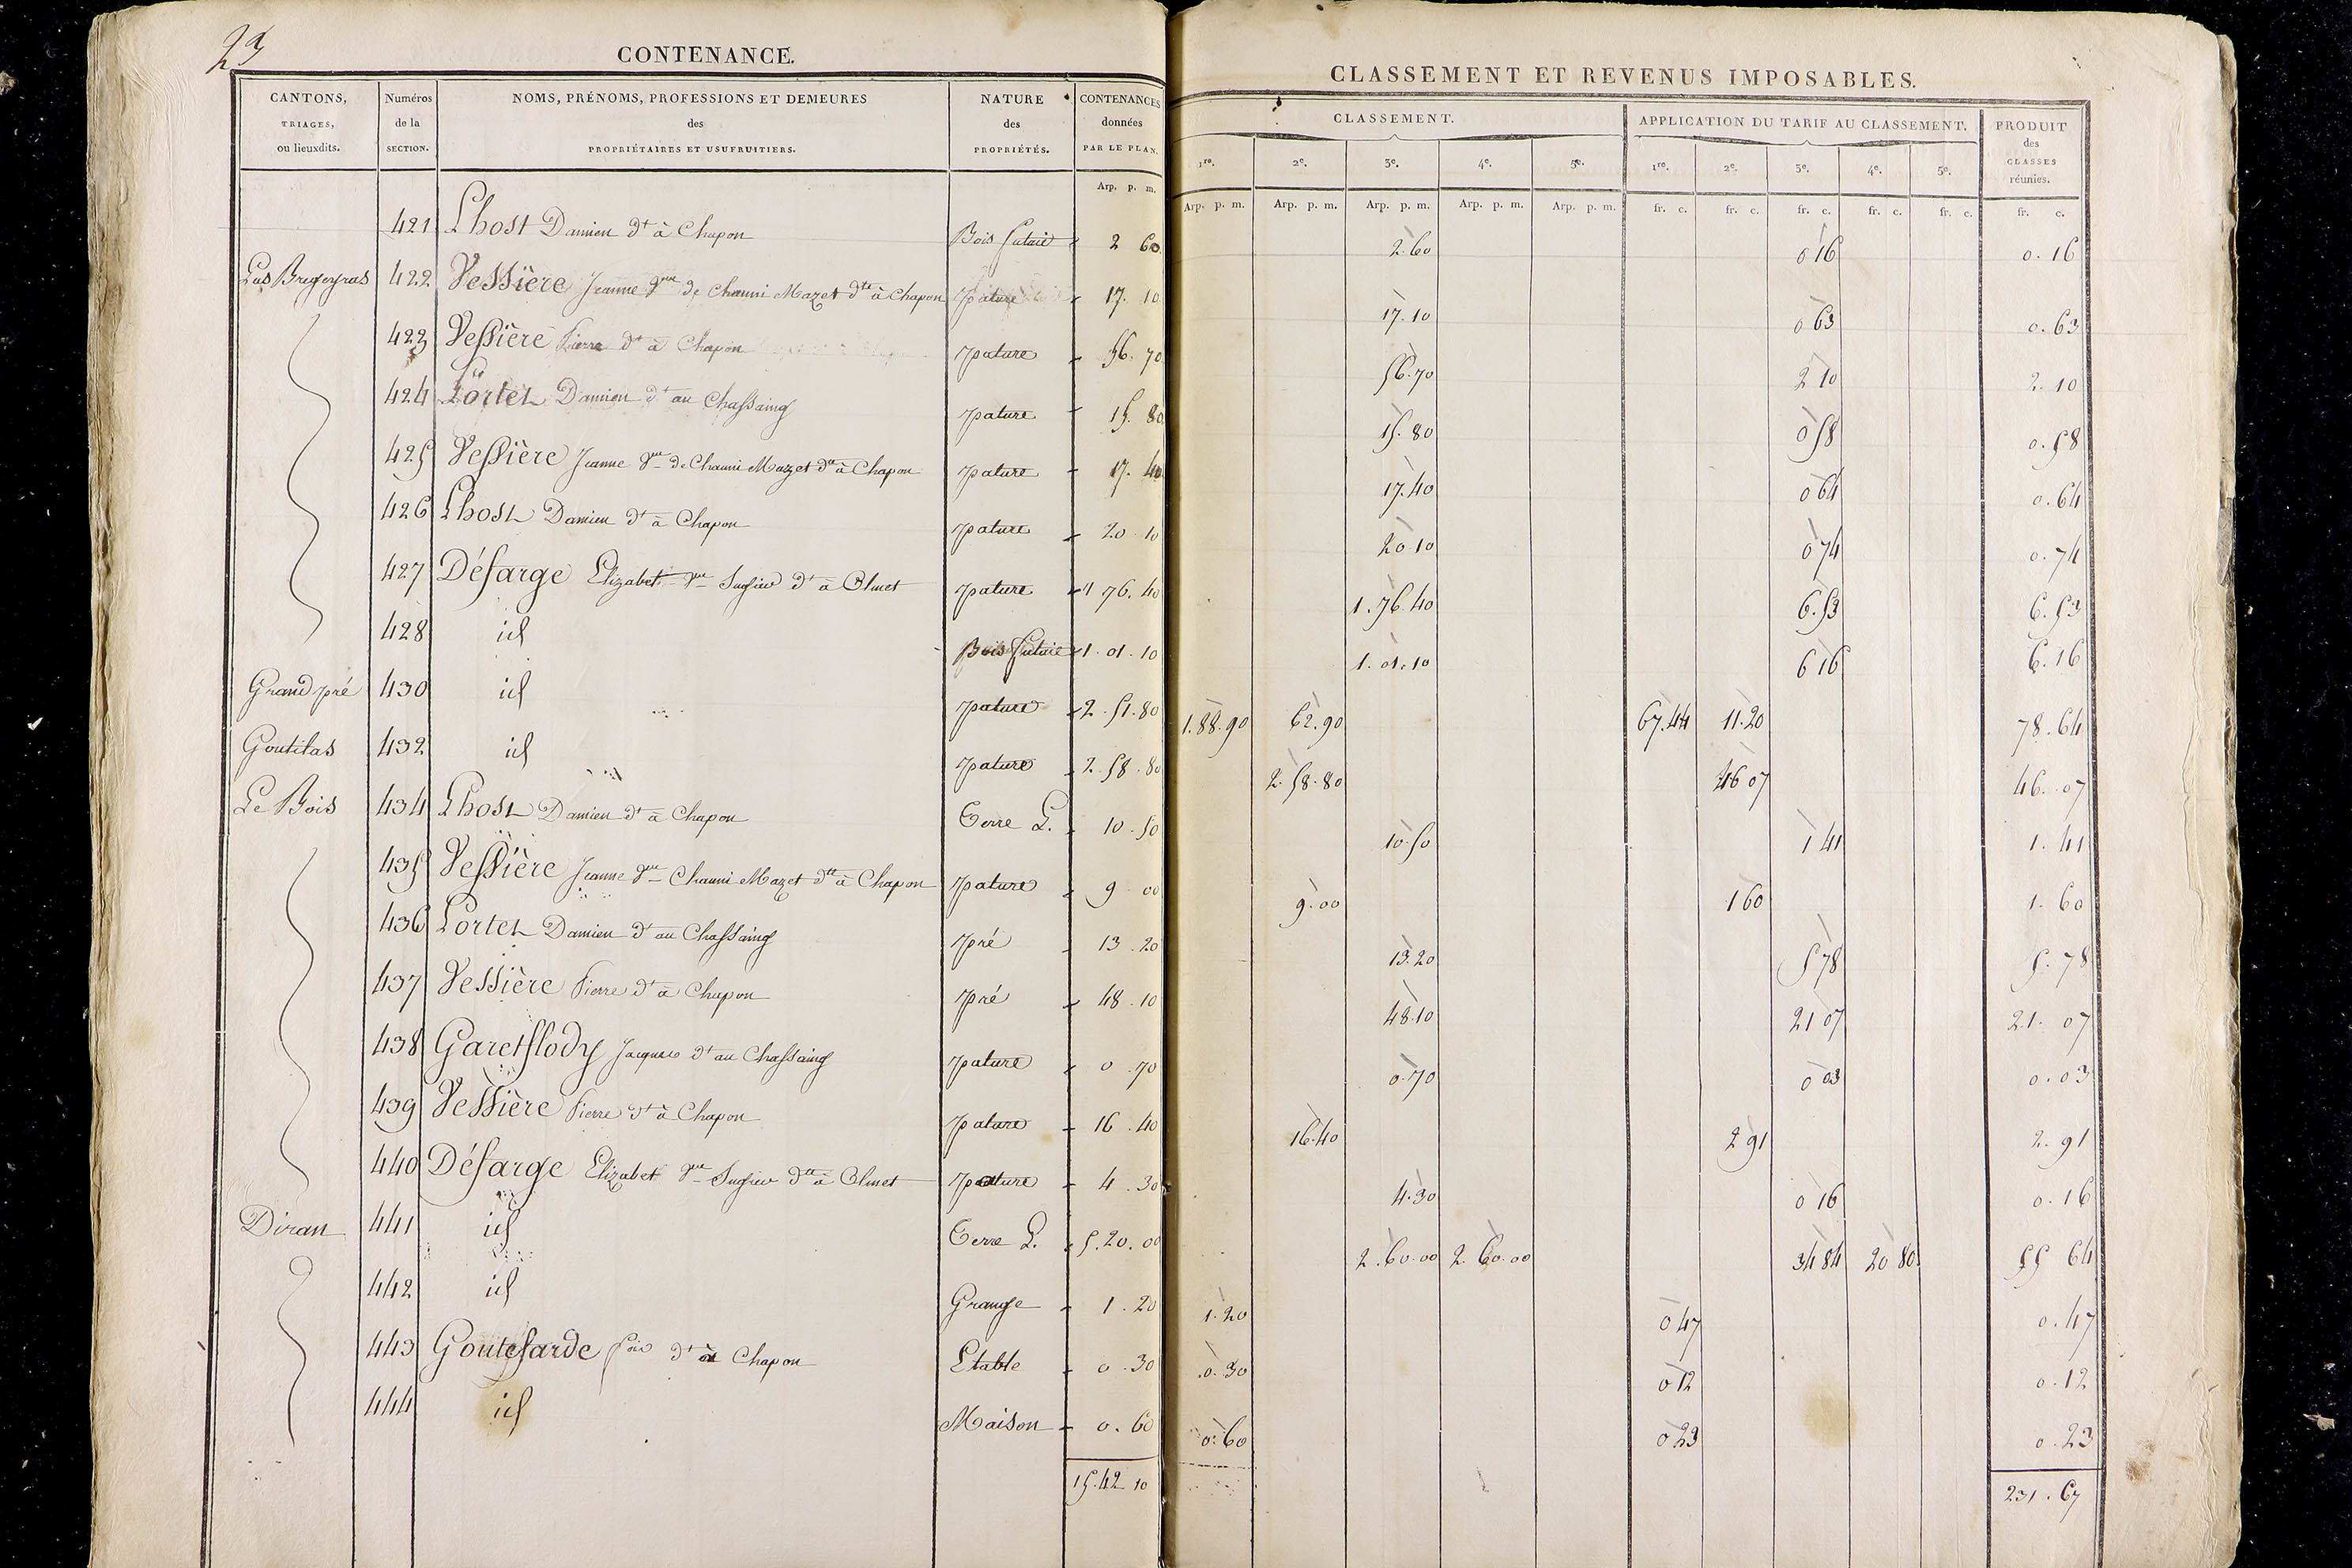 23
CONTENANCE.
CANTONS, TRIAGES, ou lieuxdits. Numéros de la SECTION. NOMS, PRÉNOMS, PROFESSIONS ET DEMEURES des PROPRIÉTAIRES ET USUFRUITIERS. NATURE des PROPRIÉTÉS. CONTENANCES données PAR LE PLAN.
Arp. p. m.
CLASSEMENT ET REVENUS IMPOSABLES.
CLASSEMENT. APPLICATION DU TARIF AU CLASSEMENT. PRODUIT des CLASSES réunies.
1re. 2e. 3e. 4e. 5e. 1re. 2e. 3e. 4e. 5e.
Arp. p. m. Arp. p. m. Arp. p. m. Arp. p. m. Arp. p. m. fr. c. fr. c. fr. c. fr. c. fr. c. fr. c.
421 Lhost Damien dt à Chapon Bois futaie 2 60 2.60 0 16 0.16
Las Brugeyras 422 Vessière Jeanne Vve de Chauni Mazet dte à Chapon pature 17.10 17.10 0 63 0.63
423 Vessière Pierre dt à Chapon pature 56.70 56.70 2 10 2.10
424 Portet Damien dt au Chassaing pature 15.80 15.80 0 58 0.58
425 Vessière Jeanne Vve de Chauni Mazet dte à Chapon pature 17.40 17.40 0 64 0.64
426 Lhost Damien dt à Chapon pature 20 10 20 10 0 74 0.74
427 Défarge Elizabet Vve dt à Olmet pature 1 76.40 1.76.40 6.53 6.53
428 id Bois futaie 1.01.10 1.01.10 6 16 6.16
Grand pré 430 id pature 2.51.80 1.88.90 62.90 67.44 11.20 78.64
Goutilas 432 id pature 2.58.80 2.58.80 46 07 46.07
Le Bois 434 Lhost Damien dt à Chapon Terre L. 10.50 10.50 1 41 1.41
435 Vessière Jeanne Vve Chauni Mazet dte à Chapon pature 9 00 9.00 1 60 1.60
436 Portet Damien dt au Chassaing pré 13.20 13.20 5 78 5.78
437 Vessière Pierre dt à Chapon pré 48.10 48.10 21 07 21.07
438 Jacques dt au Chassaing pature 0.70 0.70 0 03 0.03
439 Vessière Pierre dt à Chapon pature 16.40 16.40 2 91 2.91
440 Défarge Elizabet Vve dte à Olmet pature 4.30 4.30 0 16 0.16
Diran 441 id Terre L. 5.20.00 2.60.00 2.60.00 34 84 20 80 55 64
442 id Grange 1.20 1.20 0 47 0.47
443 Goutefarde dt à Chapon Etable 0.30 0.30 0 12 0.12
444 id Maison 0.60 0.60 0 23 0.23
15.42 10 231.67